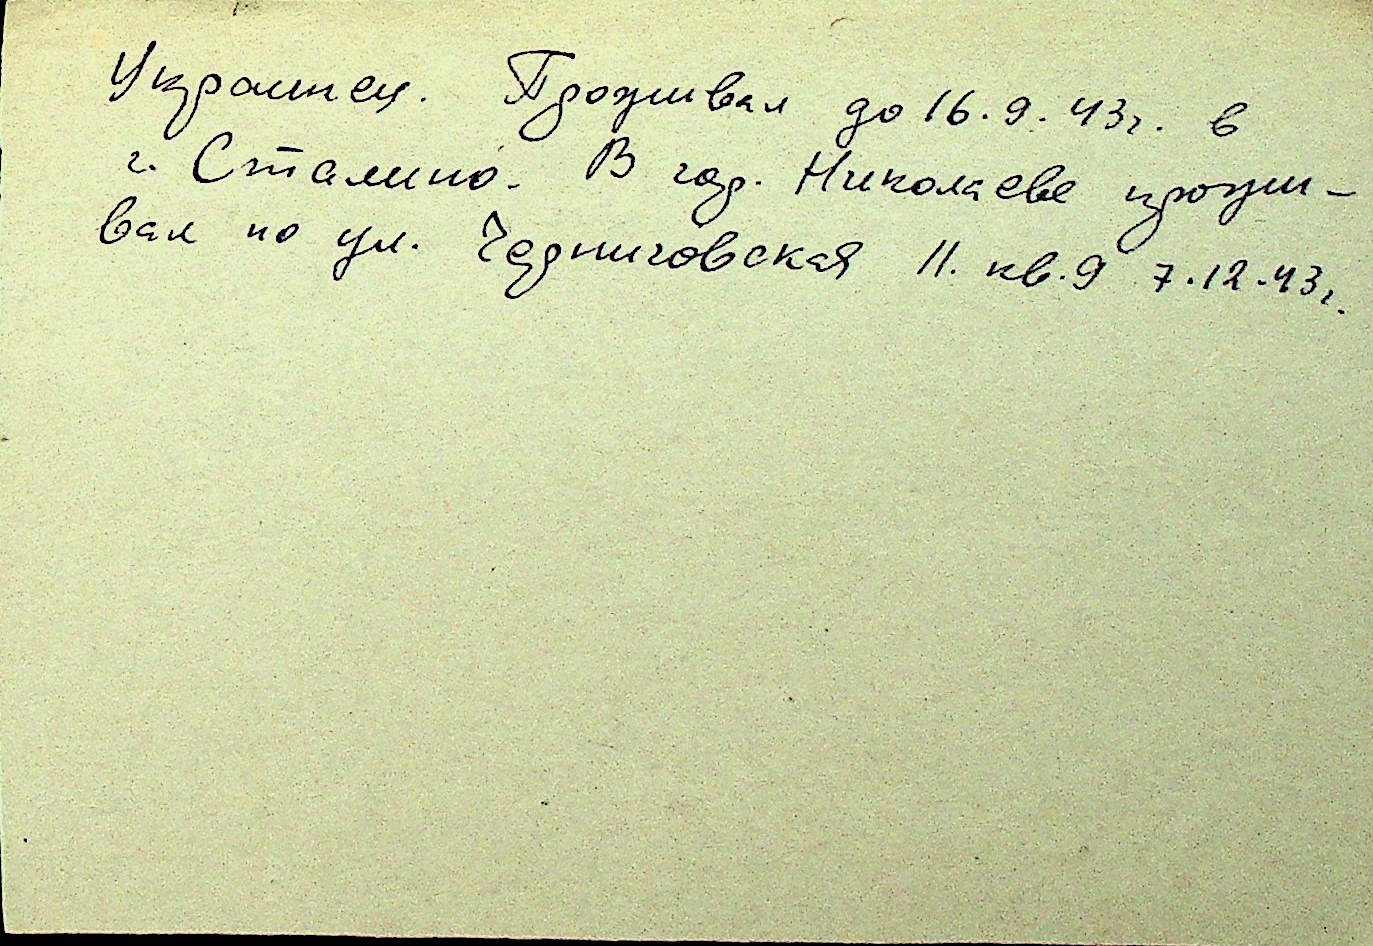 Украинец. Проживал до 16.9.43г. в
г. Сталино. В гор. Николаеве прожи-
вал по ул. Черниговская 11. кв.9 7.12.43г.